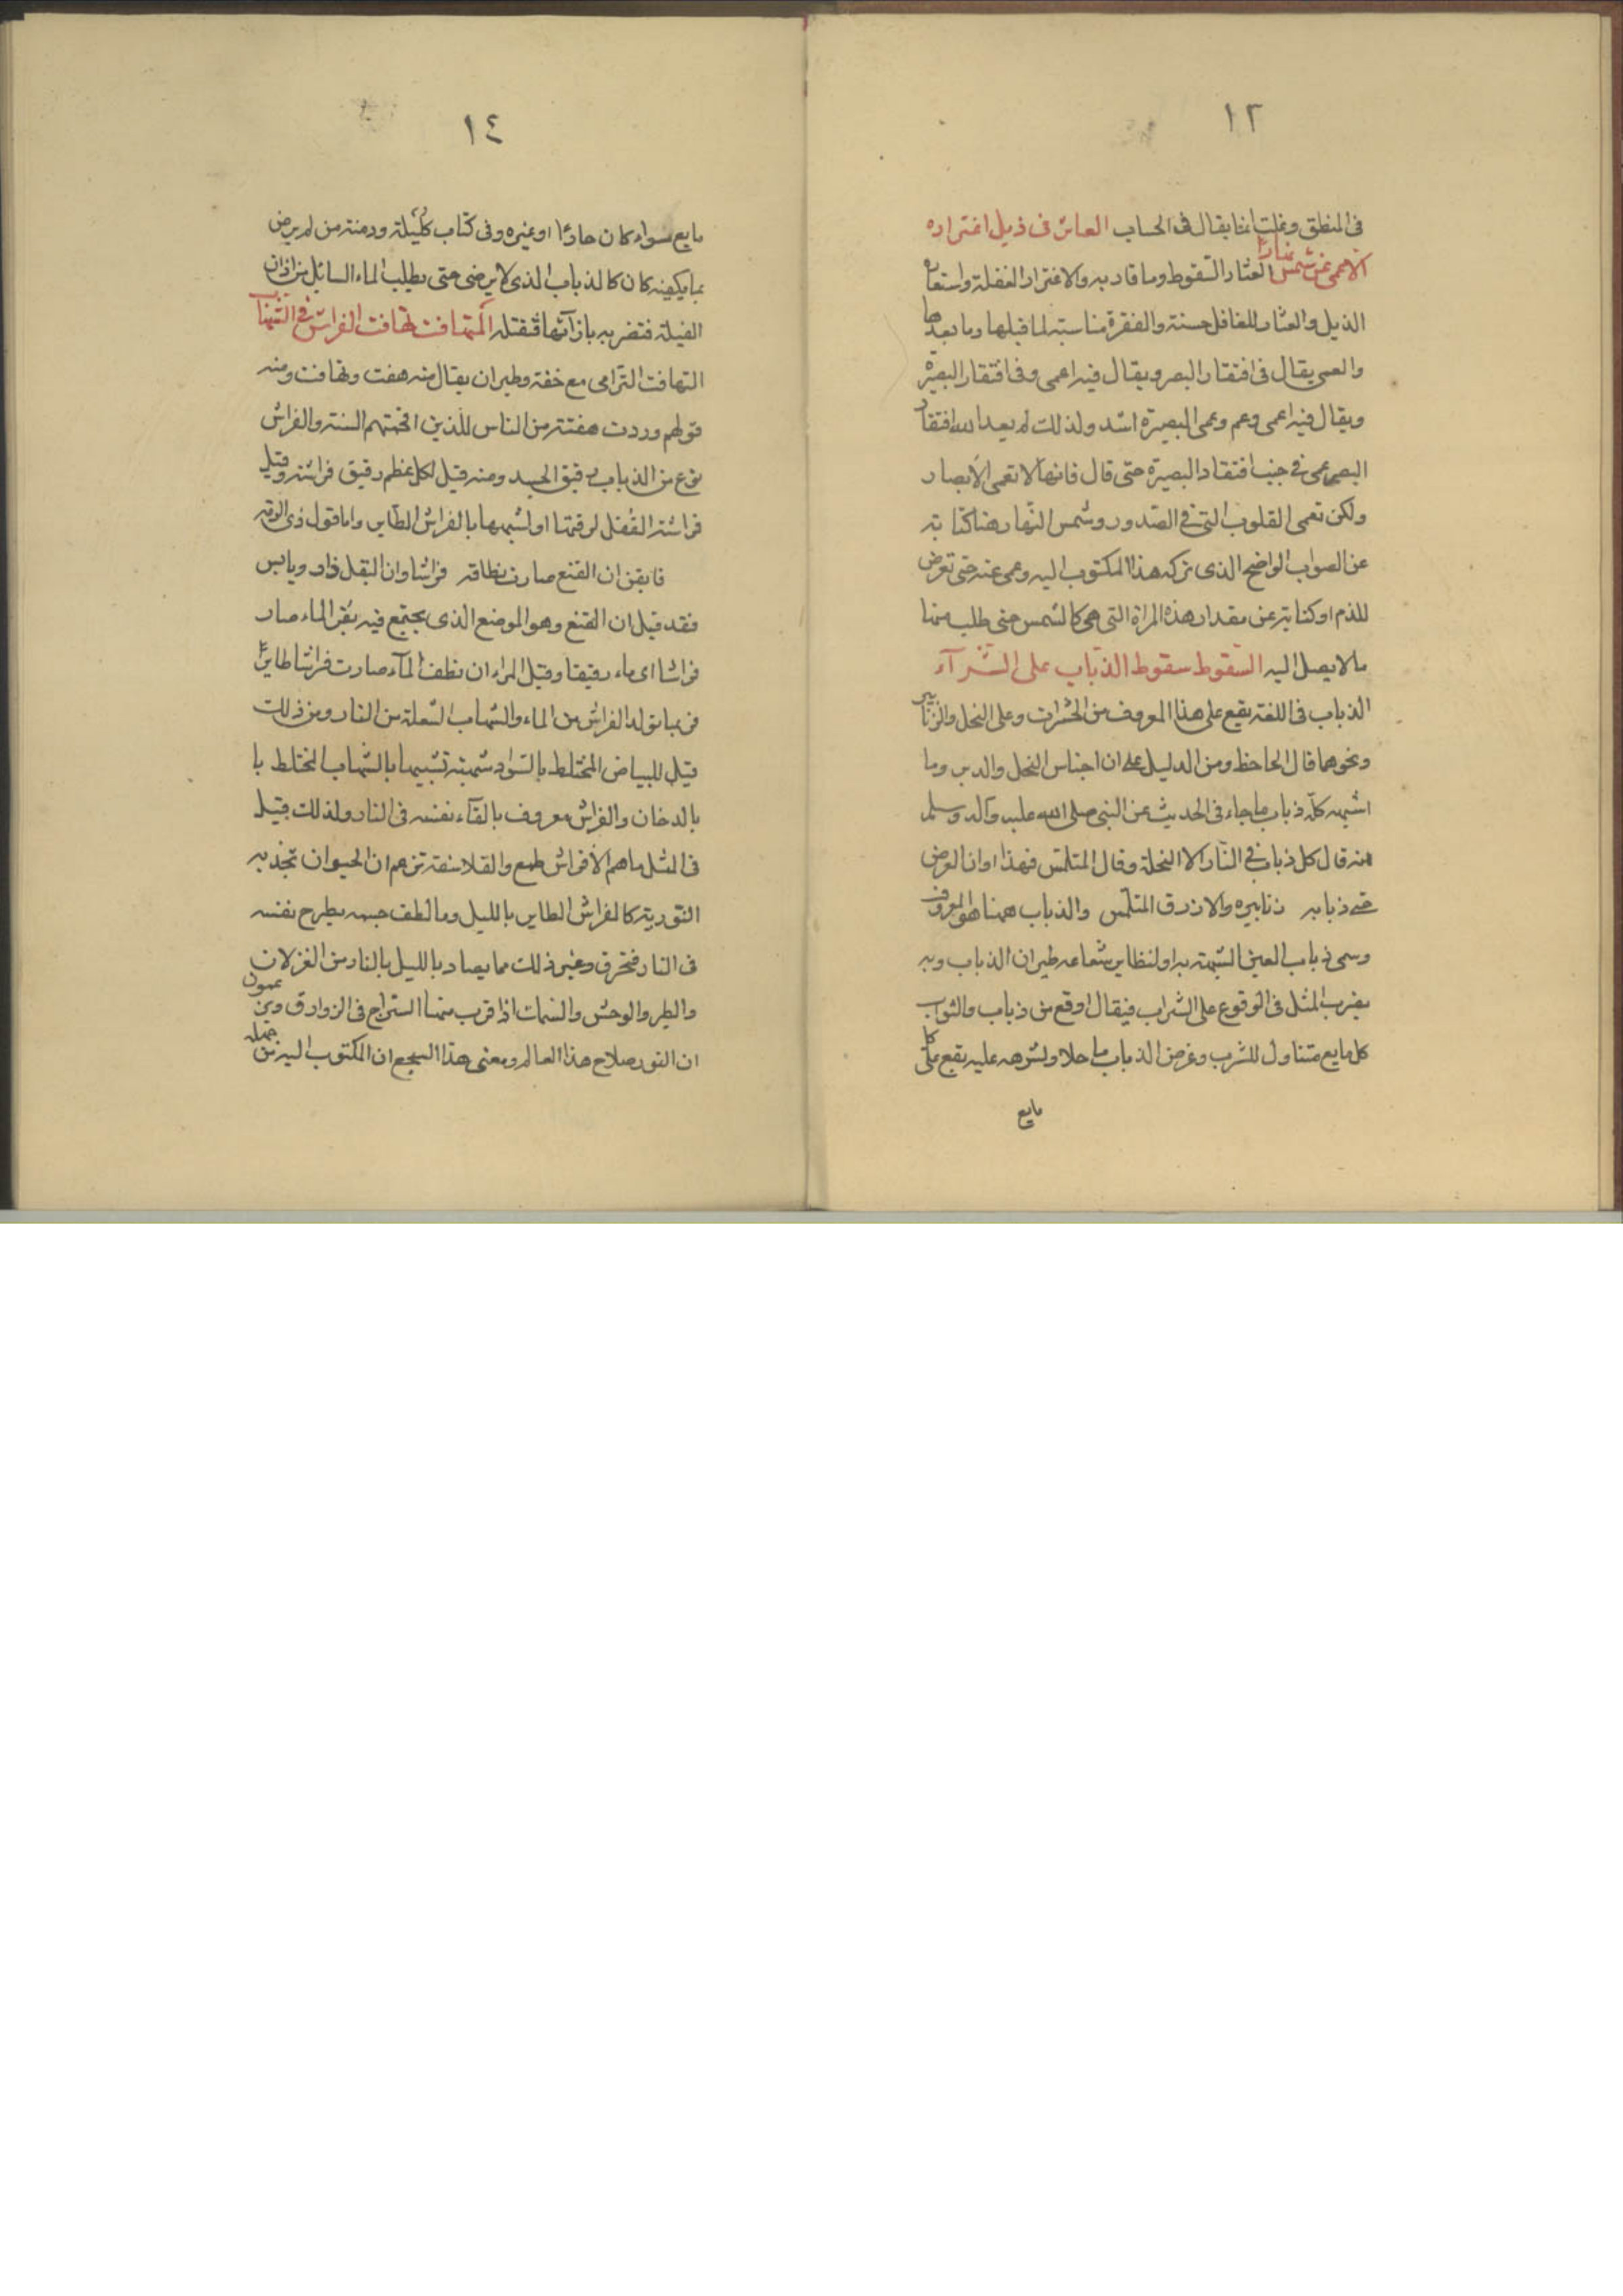 ١٣
فى المنطق وغلت انما يقال فى الحساب العاثر فى ذيل اغتراره
الاعمى عن شمس نهاره العثار السقوط وما قاد به والاغترار الغفلة واستعاره
الذيل والعثار للغافل حسنة والفقرة مناسبة لما قبلها وما بعدها
والعمى يقال فى افتقار البصر ويقال فيه اعمى وفى افتقار البصيرة
ويقال فيه اعمى وعم وعمى البصيرة اشد ولذلك لم يعد الله افتقاد
البصر عمى فى جنب افتقاد البصيرة حتى قال فانها لا تعمى الابصار
ولكن تعمى القلوب التى فى الصدور وشمس النهار هنا كناية
عن الصواب الواضح الذى تركه هذا المكتوب اليه وعمى عنه حتى تعرض
للذم او كناية عن مقدار هذه المراة التى هى كالشمس حتى طلب منها
ما لا يصل اليه السقوط سقوط الذباب على الشراب
الذباب فى اللغة يقع على هذا المعروف من الحشرات وعلى النحل والزنابير
ونحوهما قال الجاحظ ومن الدليل على ان اجناس النحل والدبر وما
اشبهه كله ذباب ما جاء فى الحديث عن النبى صلى الله عليه وآله وسلم
انه قال كل ذباب فى النار الا النحلة وقال المتلمس فهذا اوان العرض
ذبابه زنابيره والازرق المتلمس والذباب ههنا هو المعروف
وسمى ذباب العين لشبهته به او لتطاير شعاعه طيران الذباب وبه
يضرب المثل فى الوقوع على الشراب فيقال اوقع من ذباب والشراب
كل مايع متناول للشرب وغرض الذباب ما حلا ولشرهه عليه يقع على كل
مايع
١٤
مايع سواء كان حارا او غيره وفى كتاب كليلة ودمنة من لم يرض
بما يكفيه كان كالذباب الذى لا يرضى حتى يطلب الماء السائل من اذان
الفيلة فتضربه باذآنها فتقتله المتهافت تهافت الفراش فى الشهاب
التهافت الترامى مع خفة وطيران يقال منه هفت وتهافت ومنه
قولهم وردت هفتة من الناس للذين اقحمتهم السنة والفراش
نوع من الذباب دقيق الجسد ومنه قيل لكل عظم رقيق فراشة وقيل
فراشة القفل لرقتها او لشبهها بالفراش الطاير واما قول ذى الرمة
فابقن ان القنع صارت نطافه فراشا وان البقل ذاو ويابس
فقد قيل ان القنع وهو الموضع الذى يجتمع فيه نقر الماء صار
فراشا اى ماء رقيقا وقيل المراد ان نطف المآء صارت فراشا طايرا
فربما تولد الفراش من الماء والشهاب الشعلة من النار ومن ذلك
قيل للبياض المختلط بالسواد شهبة تشبيها بالشهاب المختلط با
بالدخان والفراش معروف بالقآء نفسه فى النار ولذلك قيل
فى المثل ما هم الا فراش طمع والفلاسفة تزعم ان الحيوان تجذبه
النورية كالفراش الطاير بالليل وما لطف جسمه يطرح نفسه
فى النار فتحرق وغير ذلك مما يصاد بالليل بالنار من الغزلان
والطير والوحش والسمك اذا قرب منها السراج فى الزوارق ويزعمون
ان النور صلاح هذا العالم ومعنى هذا السجع ان المكتوب اليه من جهله